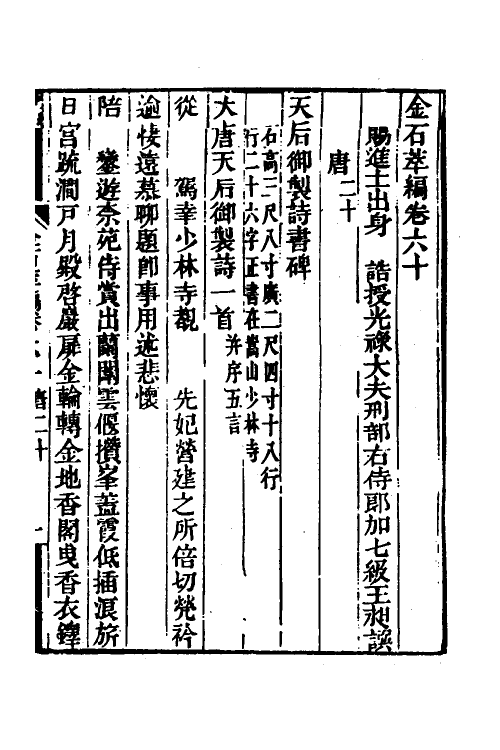 金石萃編卷六十
賜進士出身　誥授光祿大夫刑部右侍郎加七級王昶譔
唐二十
天后御製詩書碑
石高三尺八寸廣二尺四寸十八行
行二十六字正書在嵩山少林寺
大唐天后御製詩一首并序五言
從　駕幸少林寺覩　先妃營建之所倍切煢衿
逾悽遠慕聊題卽事用述悲懷
陪　鑾遊柰苑侍賞出蘭闈雲偃攢峯蓋霞低插浪旂
日宮疏澗戸月殿啓巖扉金輪轉金地香閣曳香衣鐸
唐二十
一